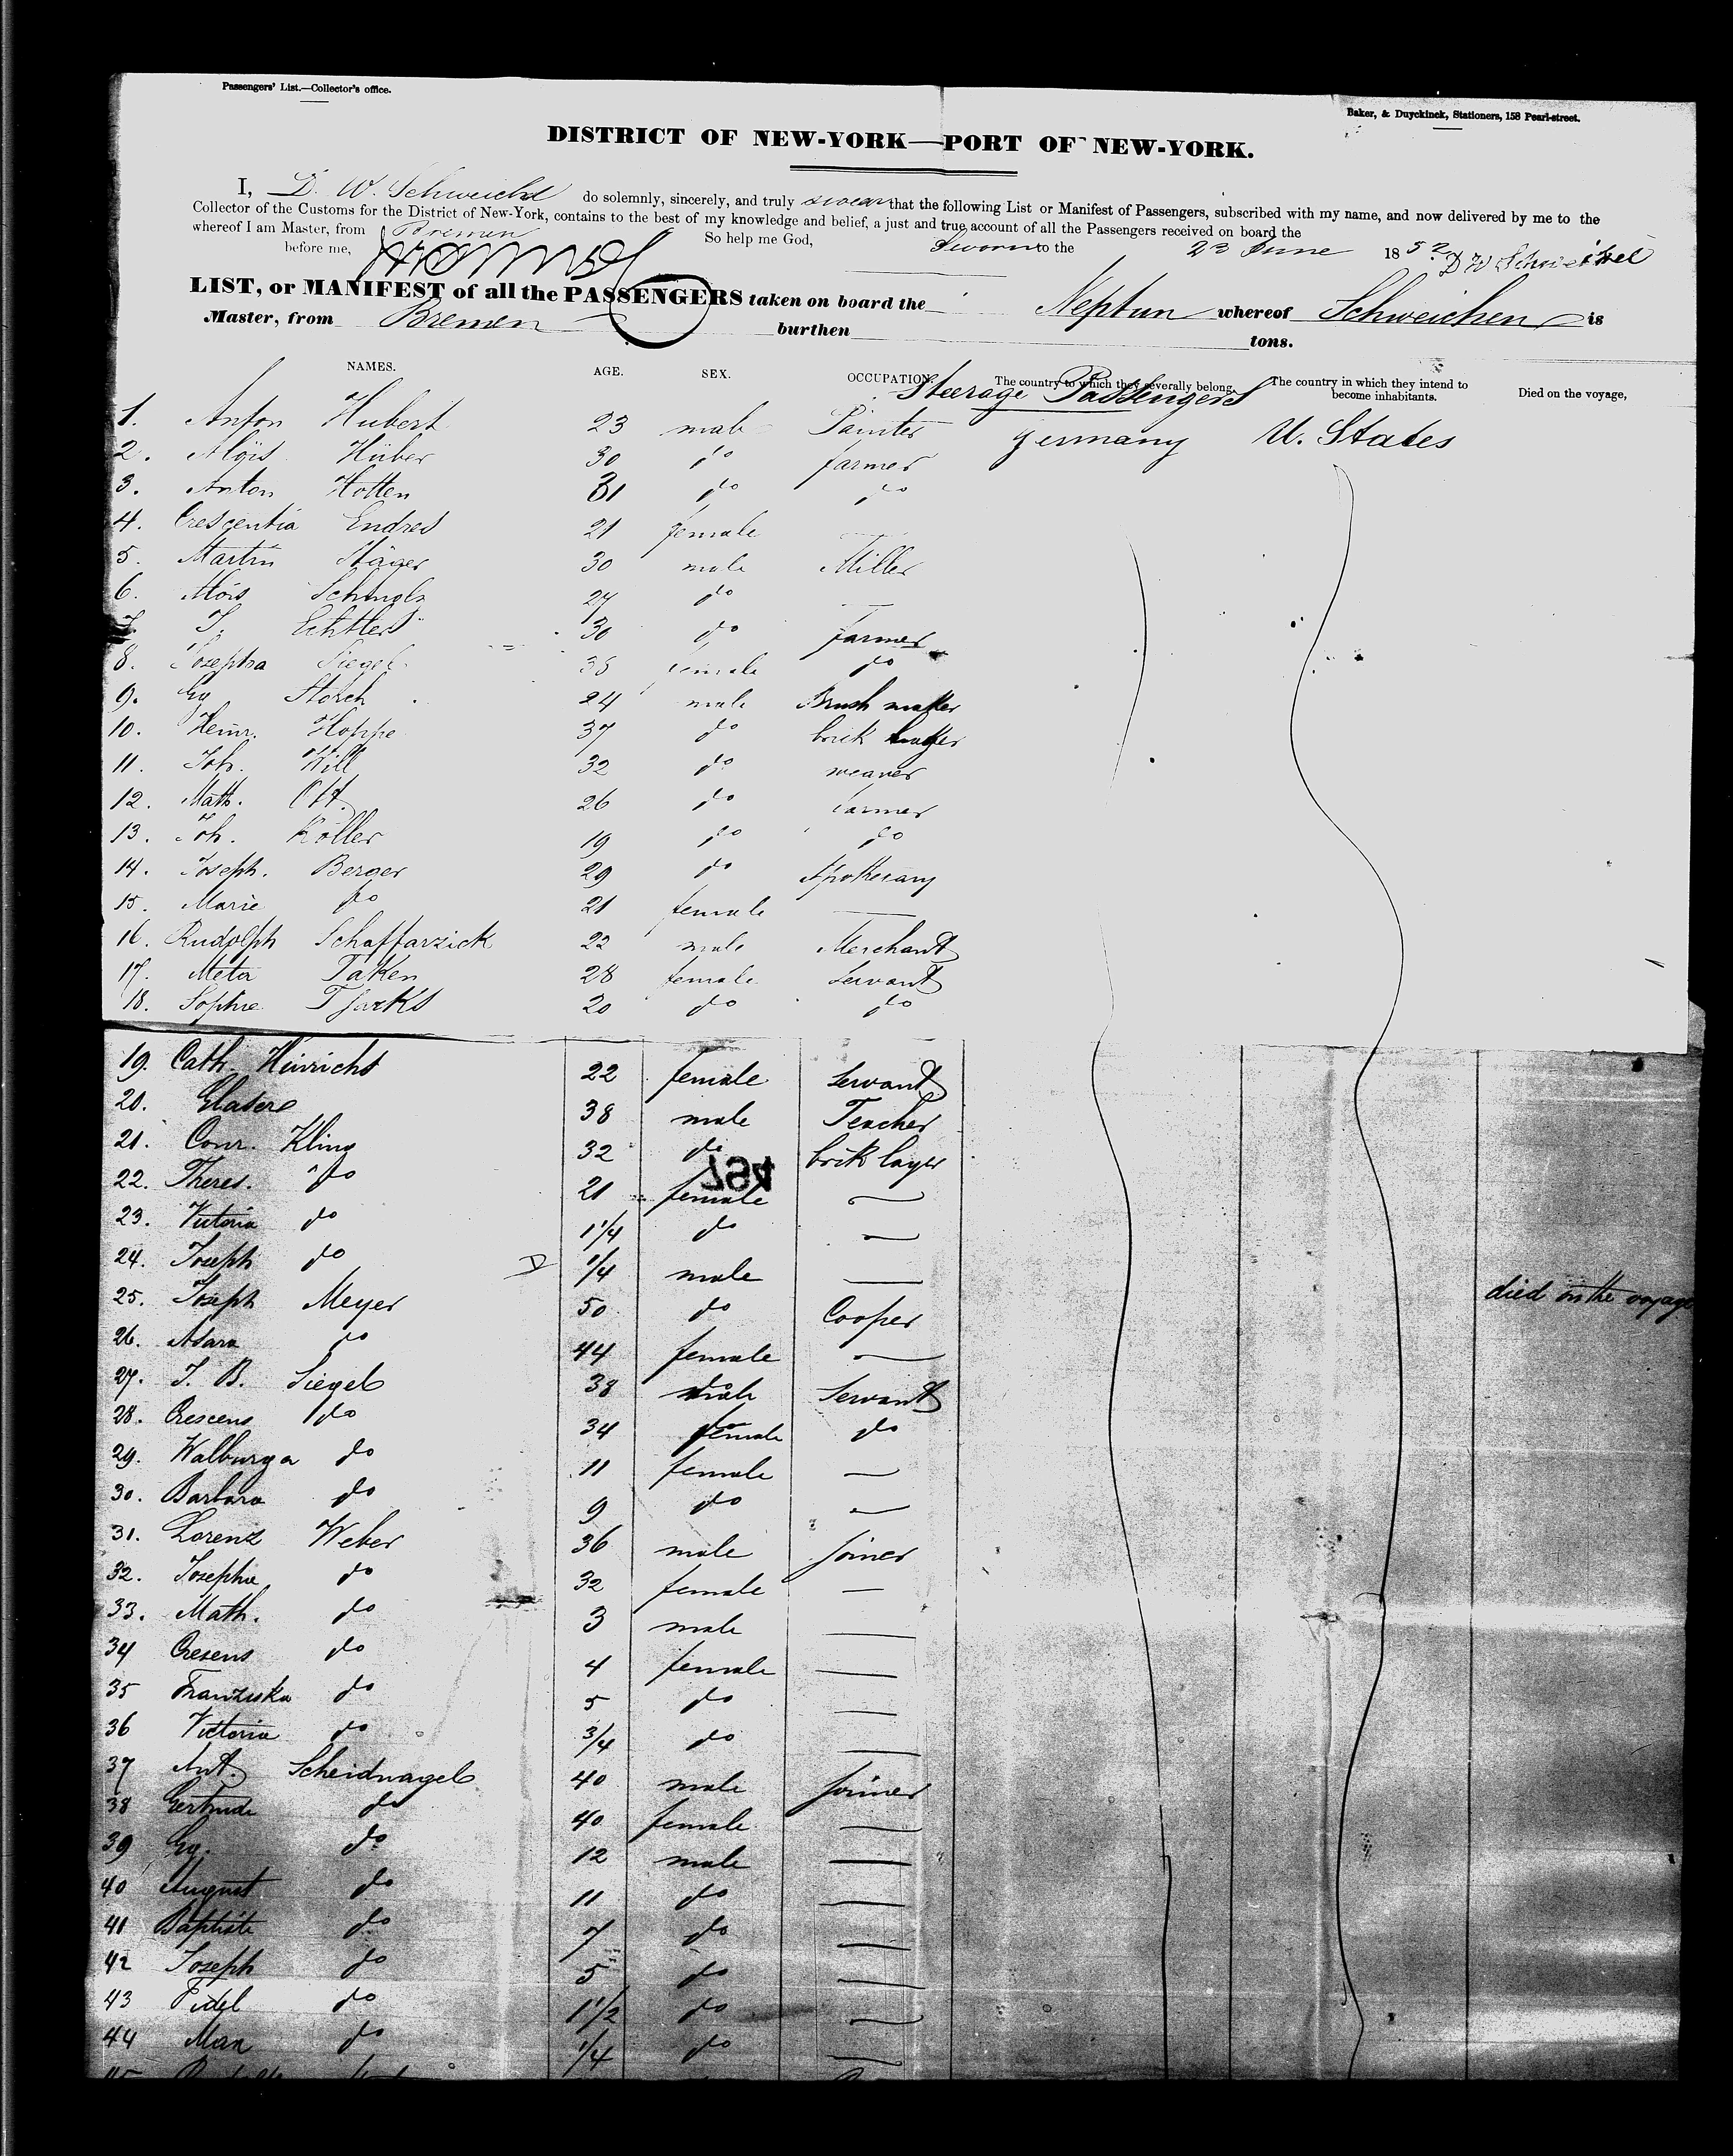 Passengers' List.—Collector's office.
Baker, & Duyckinck, Stationers, 158 Pearl-street.
DISTRICT OF NEW-YORK—PORT OF NEW-YORK.
I, D. W. do solemnly, sincerely, and truly swear that the following List or Manifest of Passengers, subscribed with my name, and now delivered by me to the
Collector of the Customs for the District of New-York, contains to the best of my knowledge and belief, a just and true account of all the Passengers received on board the
whereof I am Master, from Bremen
before me, So help me God, Sworn to the 23 June 1852. D W
LIST, or MANIFEST of all the PASSENGERS taken on board the Neptun whereof Schweichen is
Master, from Bremen burthen tons.
NAMES. AGE. SEX. OCCUPATION. The country to which they severally belong. The country in which they intend to become inhabitants. Died on the voyage,
Steerage Passengers
1. Anton Hubert 23 male Painter Germany U. States
2. Alöis Hüber 30 do farmer
3. Anton Hotten 31 do do
4. Crescentia Endres 21 female —
5. Martin 30 male Miller
6. Alois Schmolz 27 do —
7. J. Echtler 30 do farmer
8. Josepha Siegel 35 female do
9. Gg Storch 24 male Brush maker
10. Heinr. Hoppe 37 do brick
11. Joh. Will 32 do weaver
12. Math. Ott 26 do farmer
13. Joh. Koller 19 do do
14. Joseph. Berger 29 do Apothecary
15. Marie do 21 female —
16. Rudolph Schaffarzick 22 male Merchant
17. Meta Taken 28 female Servant
18. Sophie Tjarks 20 do do
19. Cath. Hinrichs 22 female Servant
20. Glasere 38 male Teacher
21. Conr. Kling 32 do brik layer
22. Theres. do 21 female —
23. Victoria do 1 1/4 do —
24. Joseph do D 1/4 male — died on the voyage
25. Joseph Meyer 50 do Cooper
26. do 44 female —
27. J. B. Siegel 38 male Servant
28. Crescens do 34 female do
29. Walburga do 11 female —
30. Barbara do 9 do —
31. Lorenz Weber 36 male joiner
32. Josepha do 32 female —
33. Math. do 3 male —
34 Cresens do 4 female —
35 Franziska do 5 do —
36 Victoria do 3/4 do —
37 Ant. Scheidnagel 40 male joiner
38 Gertrude do 40 female —
39 Gg. do 12 male —
40 August do 11 do —
41 Baptiste do 7 do —
42 Joseph do 5 do —
43 Fidel do 1 1/2 do —
44 Max do 1/4 do —